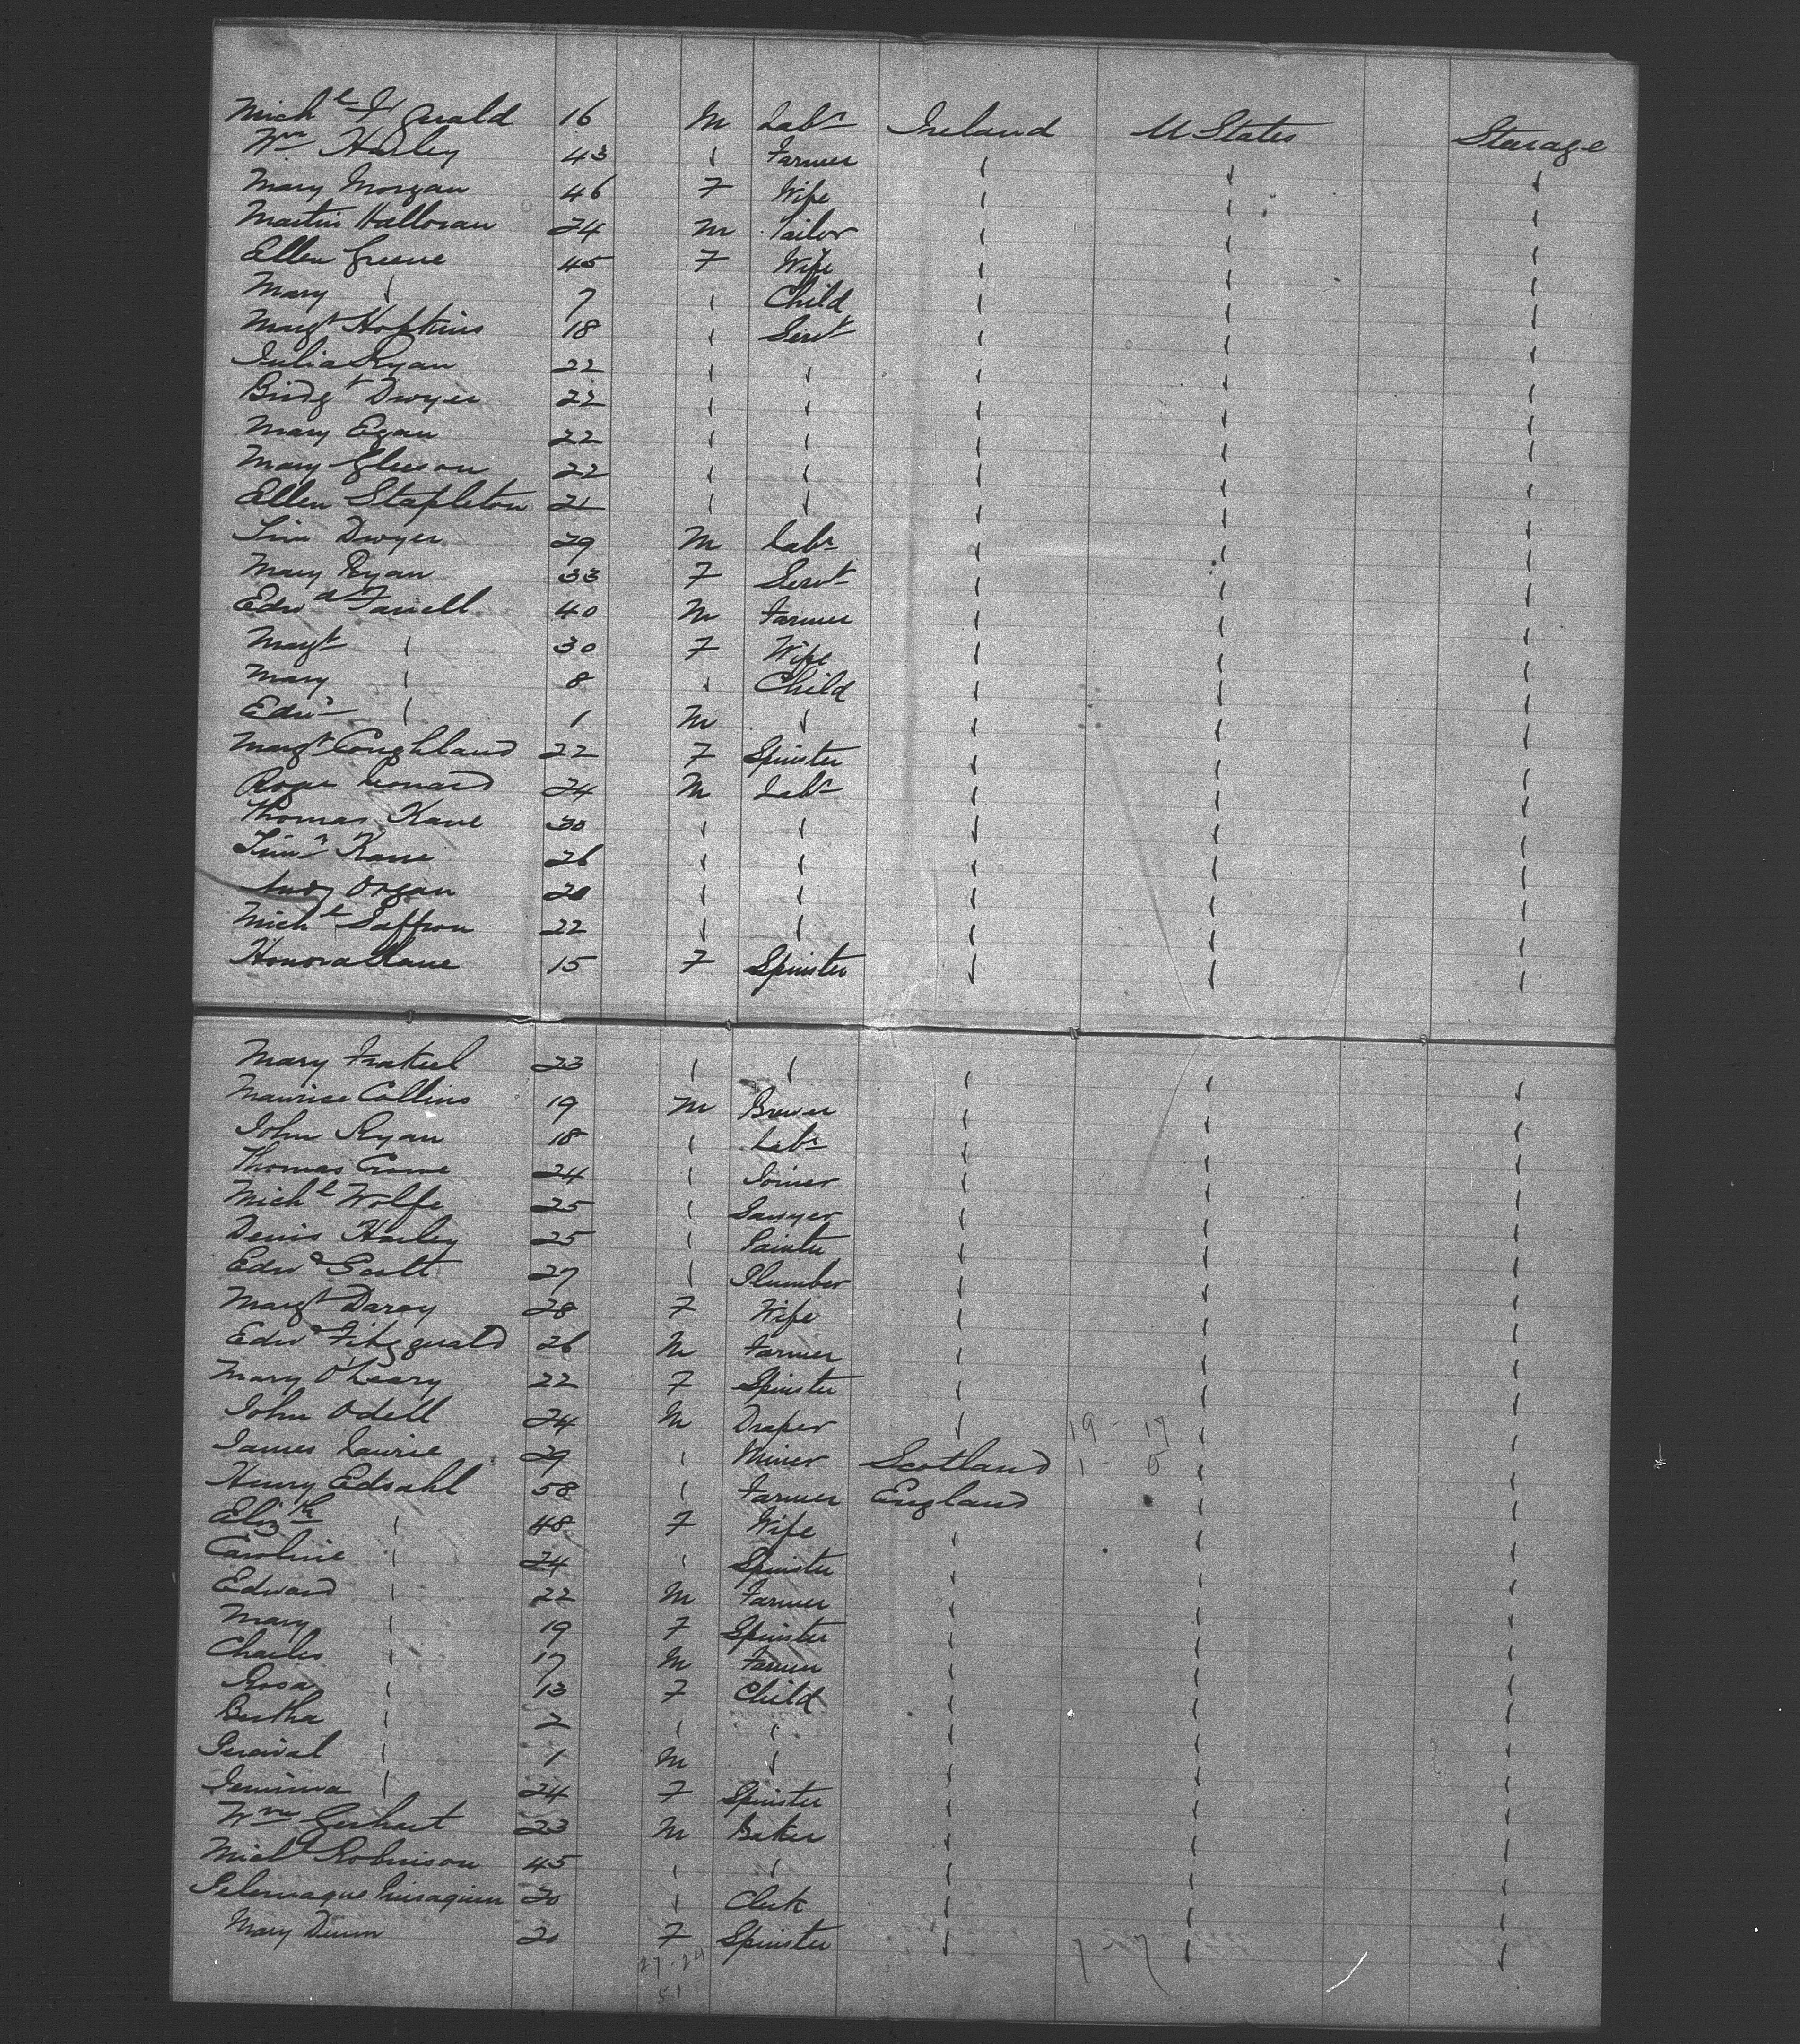 Mich^l Fz Gerald 16 M Lab^r Ireland U States Stearage
W^m Harley 43 " Farmer " " "
Mary Morgan 46 F Wife " " "
Martin Halloran 24 M Tailor " " "
Ellen Greene 45 F Wife " " "
Mary " 7 " Child " " "
Marg^t Hopkins 18 " Serv^t " " "
Julia Ryan 22 " " " " "
Bridg^t Dwyer 22 " " " " "
Mary Egan 22 " " " " "
Mary Gleeson 22 " " " " "
Ellen Stapleton 21 " " " " "
Tim Dwyer 29 M Lab^r " " "
Mary Ryan 33 F Serv^t " " "
Edw^d Farrell 40 M Farmer " " "
Marg^t " 30 F Wife " " "
Mary " 8 " Child " " "
Edw^d " 1 M " " " "
Marg^t Coughland 22 F Spinster " " "
Roger Leonard 24 M Lab^r " " "
Thomas Kane 30 " " " " "
Tim^y Kane 26 " " " " "
Organ 20 " " " " "
Mich^l Saffron 22 " " " " "
Honora Slane 15 F Spinster " " "
Mary 23 " " " " "
Maurice Collins 19 M Brewer " " "
John Ryan 18 " Lab^r " " "
Thomas Crowe 24 " Joiner " " "
Mich^l Wolfe 25 " Sawyer " " "
Denis Harley 25 " Painter " " "
Edw^d Scott 27 " Plumber " " "
Marg^t Darcy 28 F Wife " " "
Edw^d Fitzgerald 26 M Farmer " " "
Mary O'Leary 22 F Spinster " " "
John Odell 24 M Draper " 19 - 17 " "
James Laurie 29 " Miner Scotland 1 - 0 " "
Henry Edsahl 58 " Farmer England " "
Eliz^th " 48 F Wife " " "
Caroline " 24 " Spinster " " "
Edward " 22 M Farmer " " "
Mary " 19 F Spinster " " "
Charles " 17 M Farmer " " "
Rosa " 13 F Child " " "
Bertha " 2 " " " " "
Percival " 1 M " " " "
Jemima " 24 F Spinster " " "
W^m Gerhart 23 M Baker " " "
Mich^l Robinson 45 " " " " "
Telemaque 20 " Clerk " " "
Mary Dunn 20 F Spinster " " "
27 - 24
51